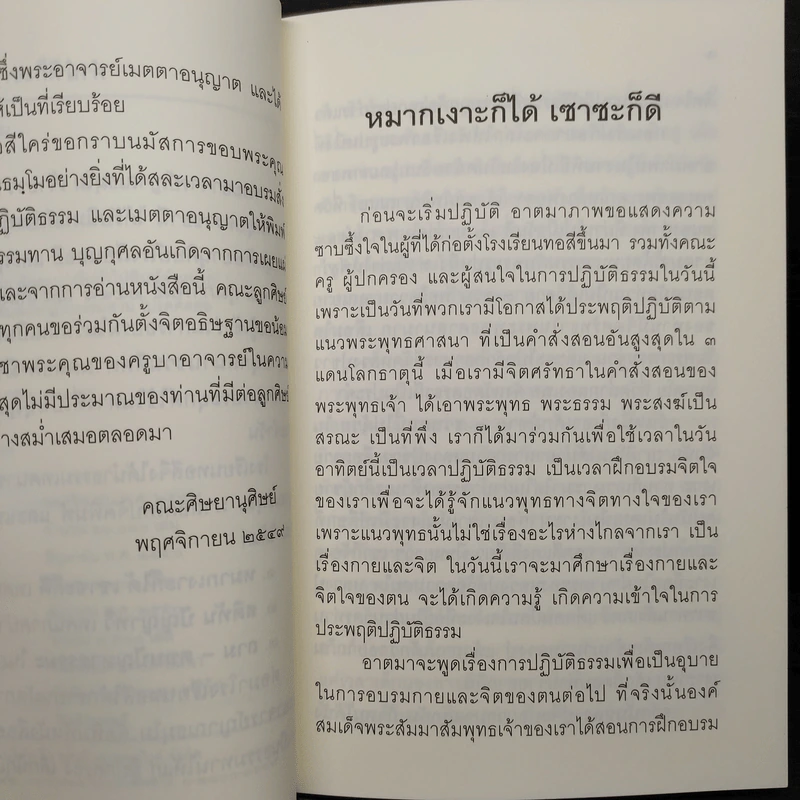 ซึ่งพระอาจารย์เมตตาอนุญาต และได้
ห้เป็นที่เรียบร้อย
สีใคร่ขอกราบนมัสการขอบพระคุณ
ธมฺโมอย่างยิ่งที่ได้สละเวลามาอบรมสั่ง
ฏิบัติธรรม และเมตตาอนุญาตให้พิมพ์
รรมทาน บุญกุศลอันเกิดจากการเผยแผ่
และจากการอ่านหนังสือนี้ คณะลูกศิษย์
ทุกคนขอร่วมกันตั้งจิตอธิษฐานขอน้อม
ชาพระคุณของครูบาอาจารย์ในความ
สุดไม่มีประมาณของท่านที่มีต่อลูกศิษย์
างสม่ำเสมอตลอดมา
คณะศิษยานุศิษย์
พฤศจิกายน ๒๕๔๙
หมากเงาะก็ได้ เซาซะก็ดี
ก่อนจะเริ่มปฏิบัติ อาตมาภาพขอแสดงความ
ซาบซึ้งใจในผู้ที่ได้ก่อตั้งโรงเรียนทอสีขึ้นมา รวมทั้งคณะ
ครู ผู้ปกครอง และผู้สนใจในการปฏิบัติธรรมในวันนี้
เพราะเป็นวันที่พวกเรามีโอกาสได้ประพฤติปฏิบัติตาม
แนวพระพุทธศาสนา ที่เป็นคำสั่งสอนอันสูงสุดใน ๓
แดนโลกธาตุนี้ เมื่อเรามีจิตศรัทธาในคำสั่งสอนของ
พระพุทธเจ้า ได้เอาพระพุทธ พระธรรม พระสงฆ์เป็น
สรณะ เป็นที่พึ่ง เราก็ได้มาร่วมกันเพื่อใช้เวลาในวัน
อาทิตย์นี้เป็นเวลาปฏิบัติธรรม เป็นเวลาฝึกอบรมจิตใจ
ของเราเพื่อจะได้รู้จักแนวพุทธทางจิตทางใจของเรา
เพราะแนวพุทธนั้นไม่ใช่เรื่องอะไรห่างไกลจากเรา เป็น
เรื่องกายและจิต ในวันนี้เราจะมาศึกษาเรื่องกายและ
จิตใจของตน จะได้เกิดความรู้ เกิดความเข้าใจในการ
ประพฤติปฏิบัติธรรม
อาตมาจะพูดเรื่องการปฏิบัติธรรมเพื่อเป็นอุบาย
ในการอบรมกายและจิตของตนต่อไป ที่จริงนั้นองค์
สมเด็จพระสัมมาสัมพุทธเจ้าของเราได้สอนการฝึกอบรม